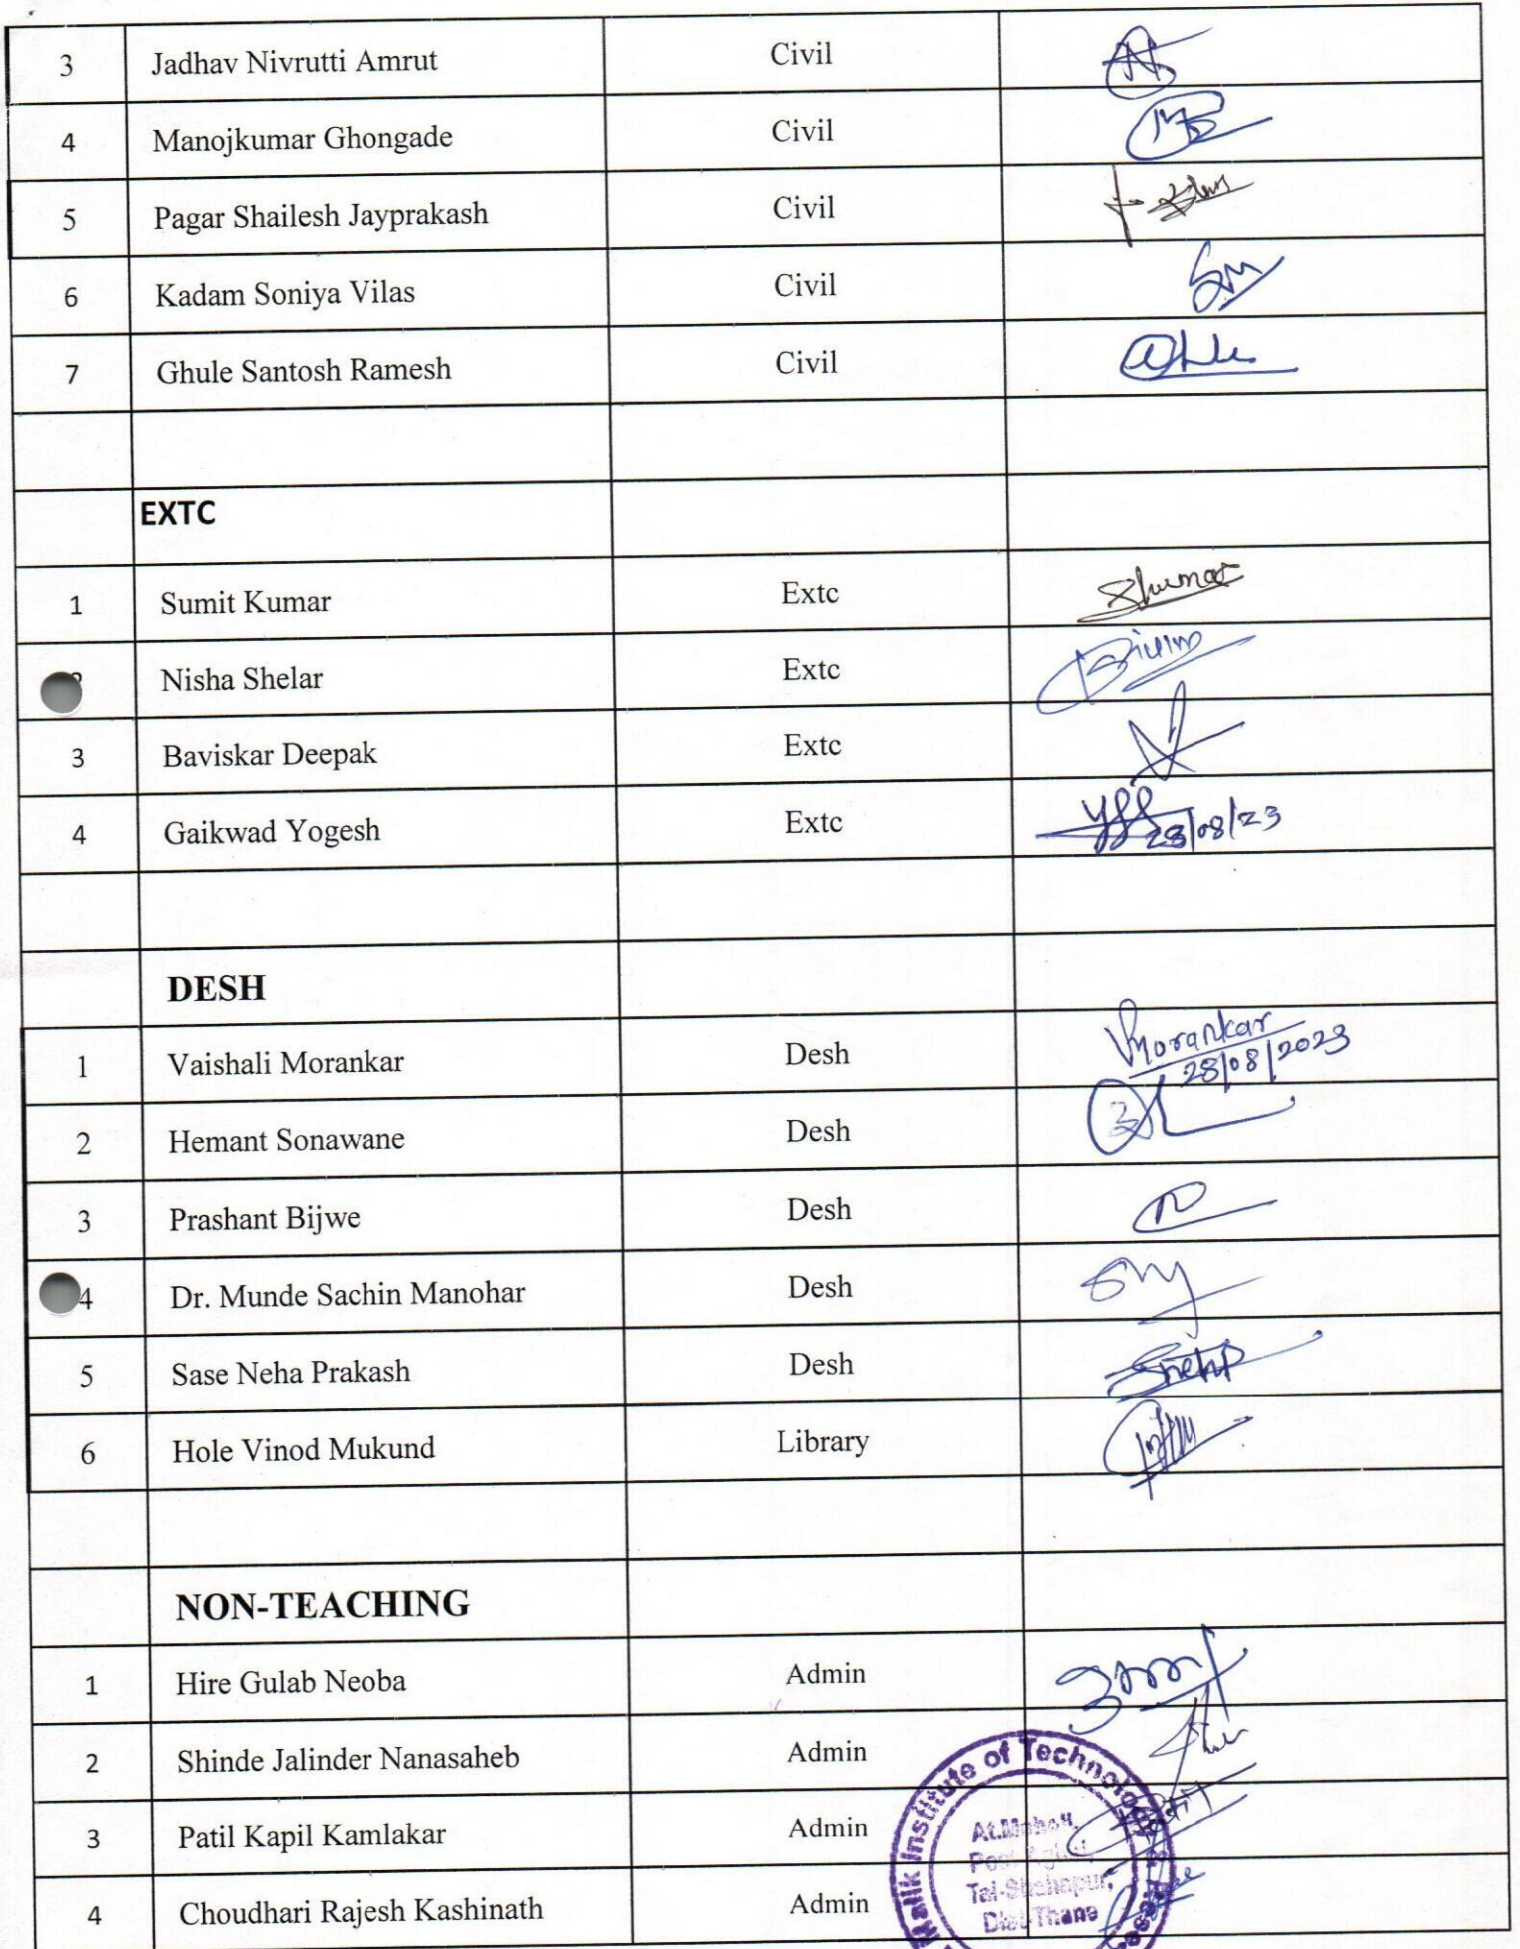 3 Jadhav Nivrutti Amrut Civil
4 Manojkumar Ghongade Civil
5 Pagar Shailesh Jayprakash Civil
6 Kadam Soniya Vilas Civil
7 Ghule Santosh Ramesh Civil
EXTC
1 Sumit Kumar Extc
Nisha Shelar Extc
3 Baviskar Deepak Extc
4 Gaikwad Yogesh Extc 28/08/23
DESH
1 Vaishali Morankar Desh VMorankar
28/08/2023
2 Hemant Sonawane Desh
3 Prashant Bijwe Desh
4 Dr. Munde Sachin Manohar Desh
5 Sase Neha Prakash Desh
6 Hole Vinod Mukund Library
NON-TEACHING
1 Hire Gulab Neoba Admin
2 Shinde Jalinder Nanasaheb Admin
3 Patil Kapil Kamlakar Admin
4 Choudhari Rajesh Kashinath Admin
Malik Institute of Technology &
Tal-Shahapur,
Dist-Thane